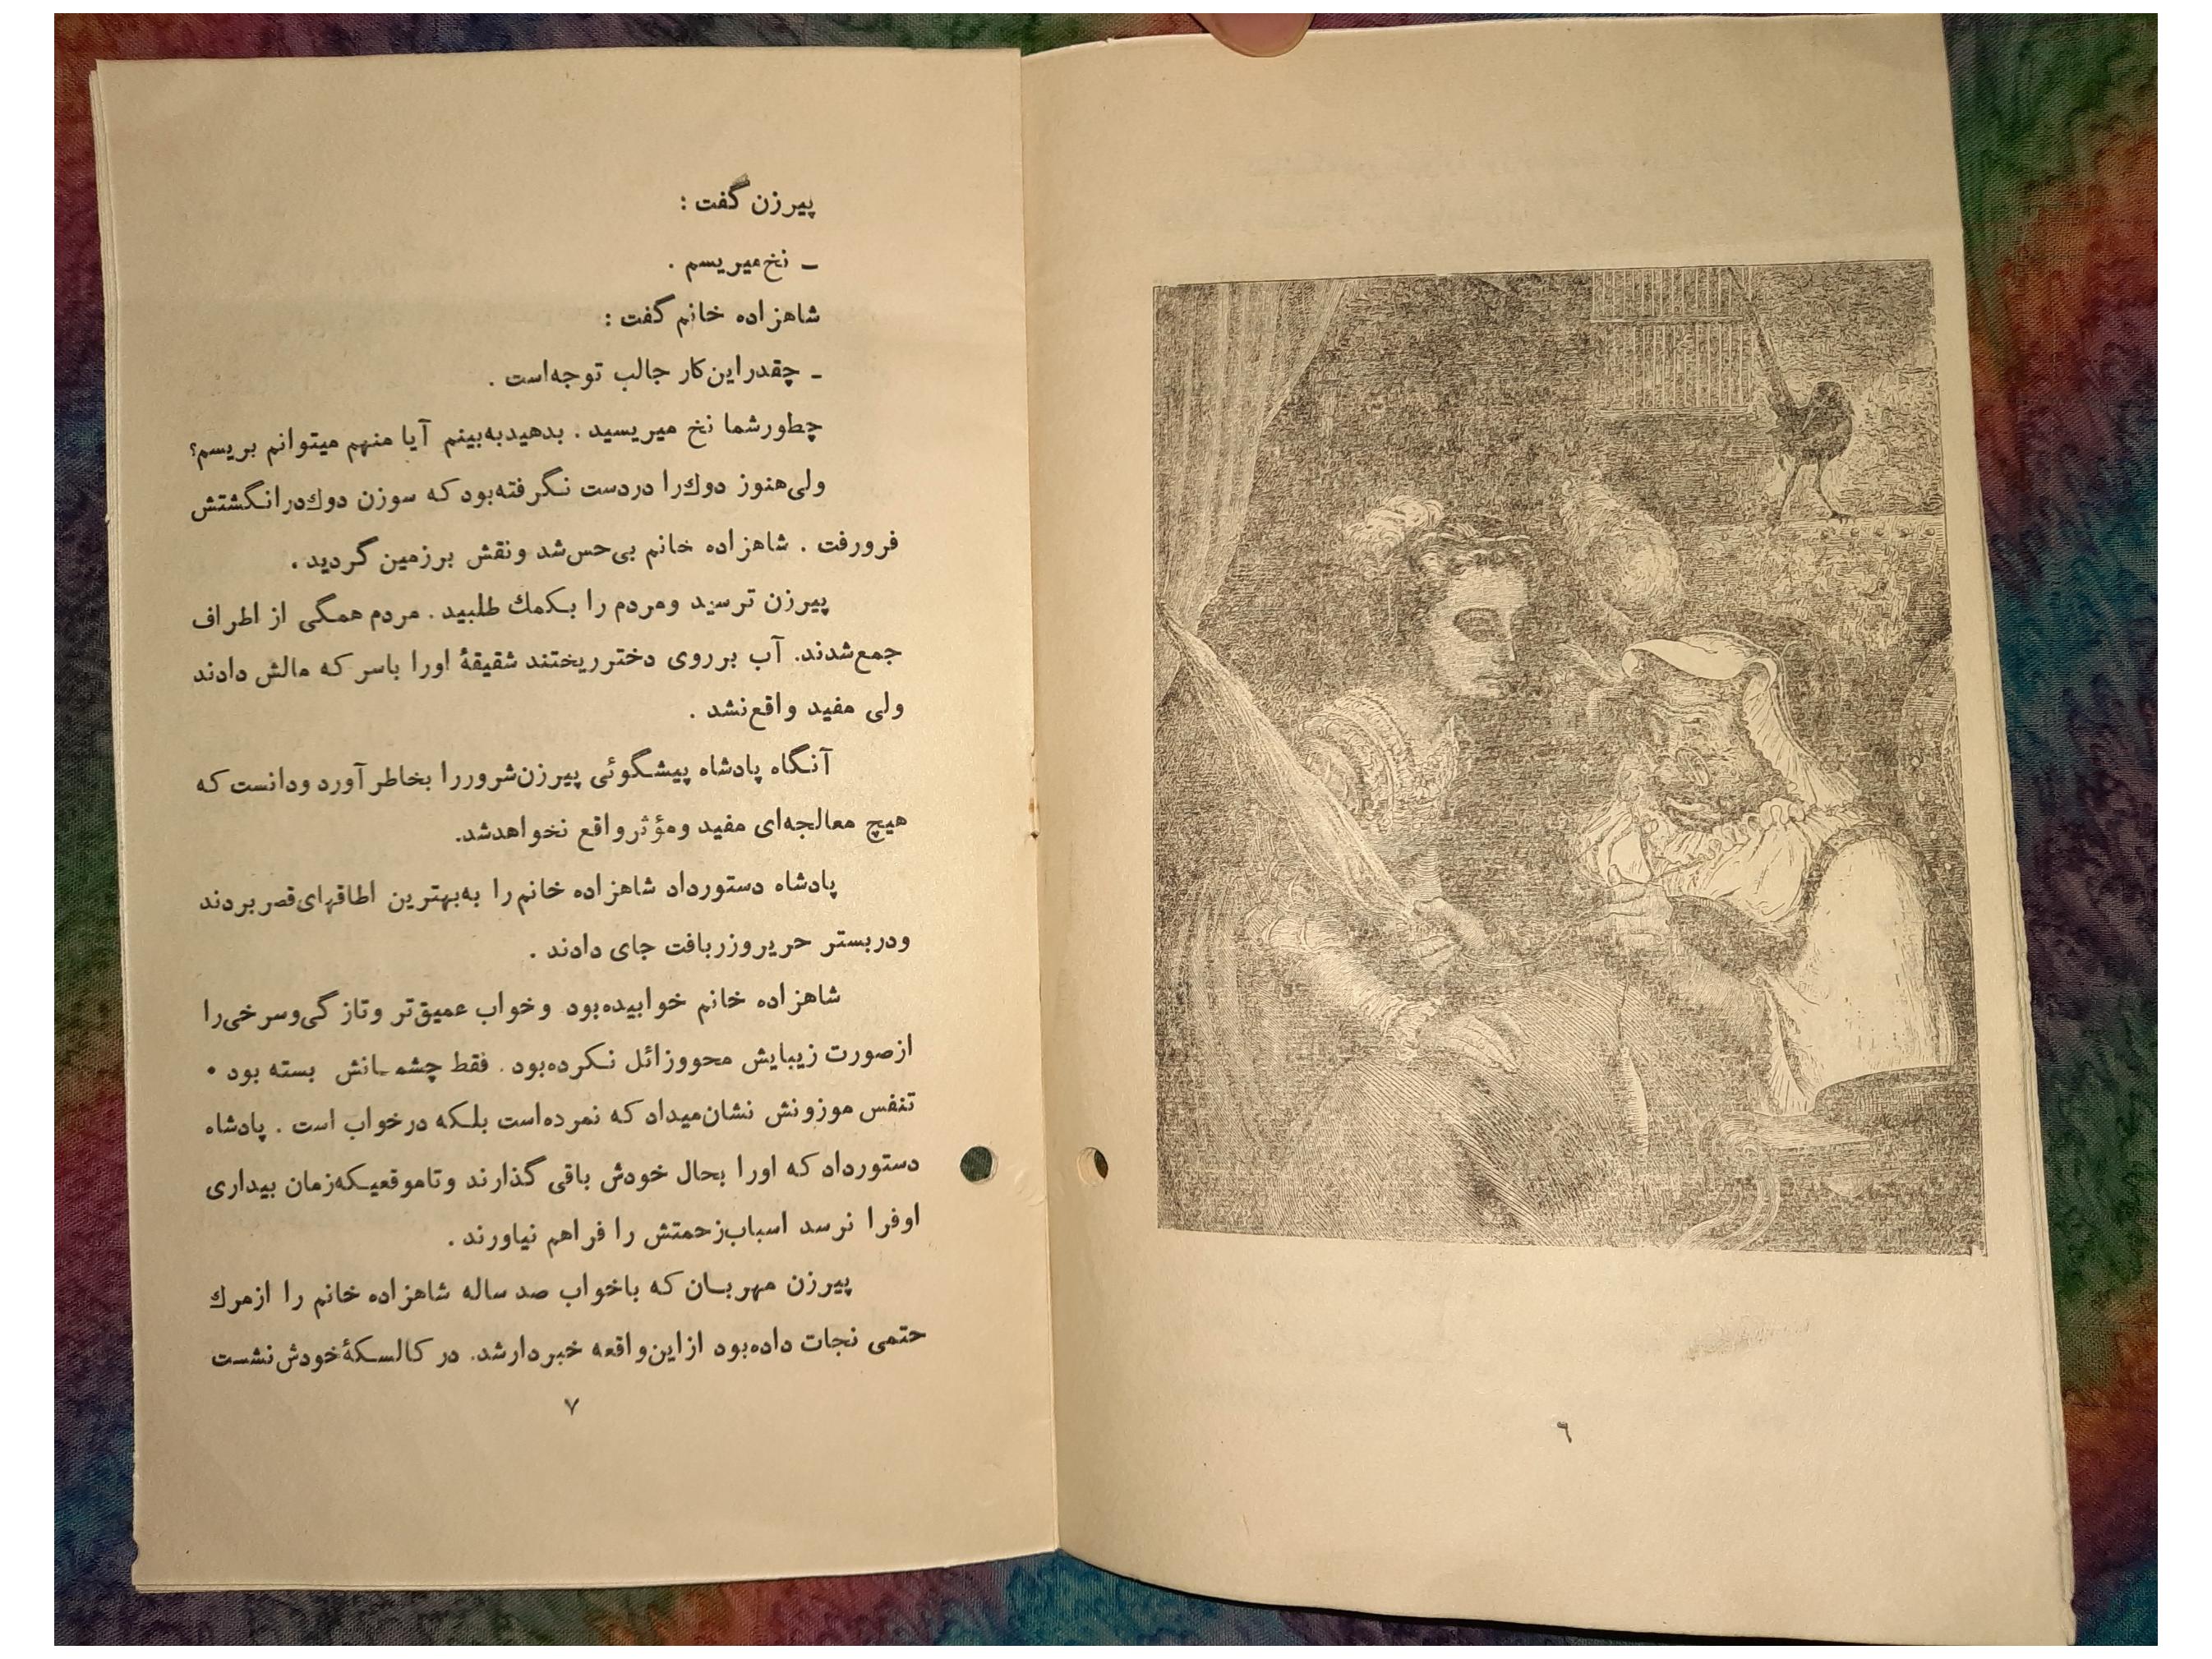 پیرزن گفت :
ـ نخ‌میریسم .
شاهزاده خانم گفت :
ـ چقدراین‌کار جالب توجه‌است .
چطورشما نخ میریسید . بدهیدبه‌بینم آیا منهم میتوانم بریسم؟
ولی‌هنوز دوك‌را دردست نگرفته‌بود که سوزن دوك‌درانگشتش
فرورفت . شاهزاده خانم بی‌حس‌شد ونقش برزمین گردید .
پیرزن ترسید ومردم را بکمك طلبید . مردم همگی از اطراف
جمع‌شدند. آب برروی دخترریختند شقیقهٔ اورا باسر که مالش دادند
ولی مفید واقع‌نشد .
آنگاه پادشاه پیشگوئی پیرزن‌شروررا بخاطرآورد ودانست که
هیچ معالجه‌ای مفید ومؤثرواقع نخواهدشد.
پادشاه دستورداد شاهزاده خانم را به‌بهترین اطاقهای‌قصربردند
ودربستر حریروزربافت جای دادند .
شاهزاده خانم خوابیده‌بود وخواب عمیق‌تر وتازگی‌وسرخی‌را
ازصورت زیبایش محووزائل نکرده‌بود . فقط چشمـانش بسته بود •
تنفس موزونش نشان‌میداد که نمرده‌است بلکه درخواب است . پادشاه
دستورداد که اورا بحال خودش باقی گذارند وتاموقعیکه‌زمان بیداری
اوفرا نرسد اسباب‌زحمتش را فراهم نیاورند .
پیرزن مهربـان که باخواب صد ساله شاهزاده خانم را ازمرك
حتمی نجات داده‌بود ازاین‌واقعه خبردارشد. در کالسکهٔ‌خودش‌نشست
۷
۶